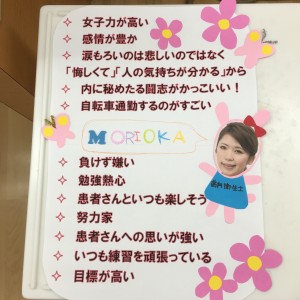 女子力が高い
感情が豊か
涙もろいのは悲しいのではなく
「悔しくて」「人の気持ちが分かる」から
内に秘めたる闘志がかっこいい！
自転車通勤するのがすごい
MORIOKA
負けず嫌い
勉強熱心
患者さんといつも楽しそう
努力家
患者さんへの思いが強い
いつも練習を頑張っている
目標が高い
歯科衛生士